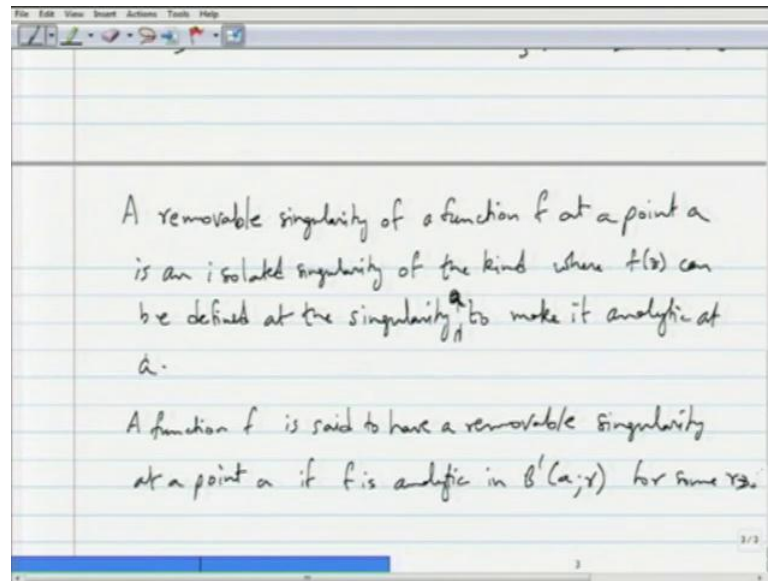 File Edit View Insert Actions Tools Help
A removable singularity of a function f at a point a
is an isolated singularity of the kind where f(z) can
be defined at the singularity a to make it analytic at
a.
A function f is said to have a removable singularity
at a point a if f is analytic in B'(a;r) for some r>0.
3/3
3